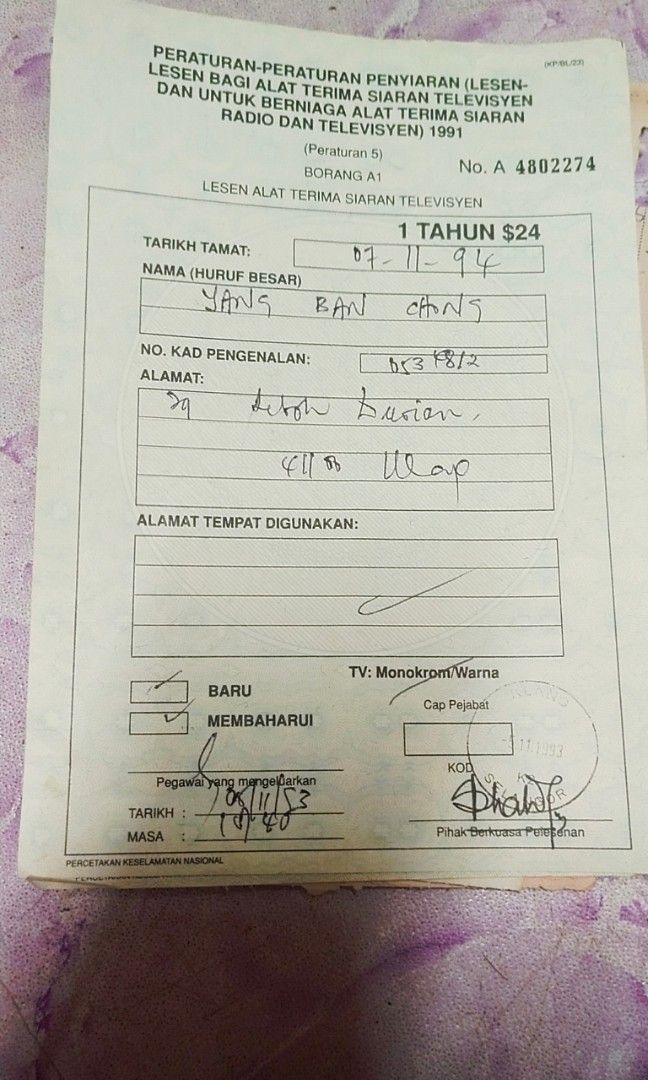 (KP/BL/23)
PERATURAN-PERATURAN PENYIARAN (LESEN-
LESEN BAGI ALAT TERIMA SIARAN TELEVISYEN
DAN UNTUK BERNIAGA ALAT TERIMA SIARAN
RADIO DAN TELEVISYEN) 1991
(Peraturan 5)
BORANG A1
No. A 4802274
LESEN ALAT TERIMA SIARAN TELEVISYEN
1 TAHUN $24
TARIKH TAMAT: 07-11-94
NAMA (HURUF BESAR)
YANG BAN CHONG
NO. KAD PENGENALAN:
ALAMAT:
Durian,
ALAMAT TEMPAT DIGUNAKAN:
TV: Monokrom/Warna
BARU
MEMBAHARUI
Cap Pejabat
KLANG
11.1993
KOD
Pegawai yang mengeluarkan
TARIKH :
MASA :
Pihak Berkuasa Pelesenan
PERCETAKAN KESELAMATAN NASIONAL